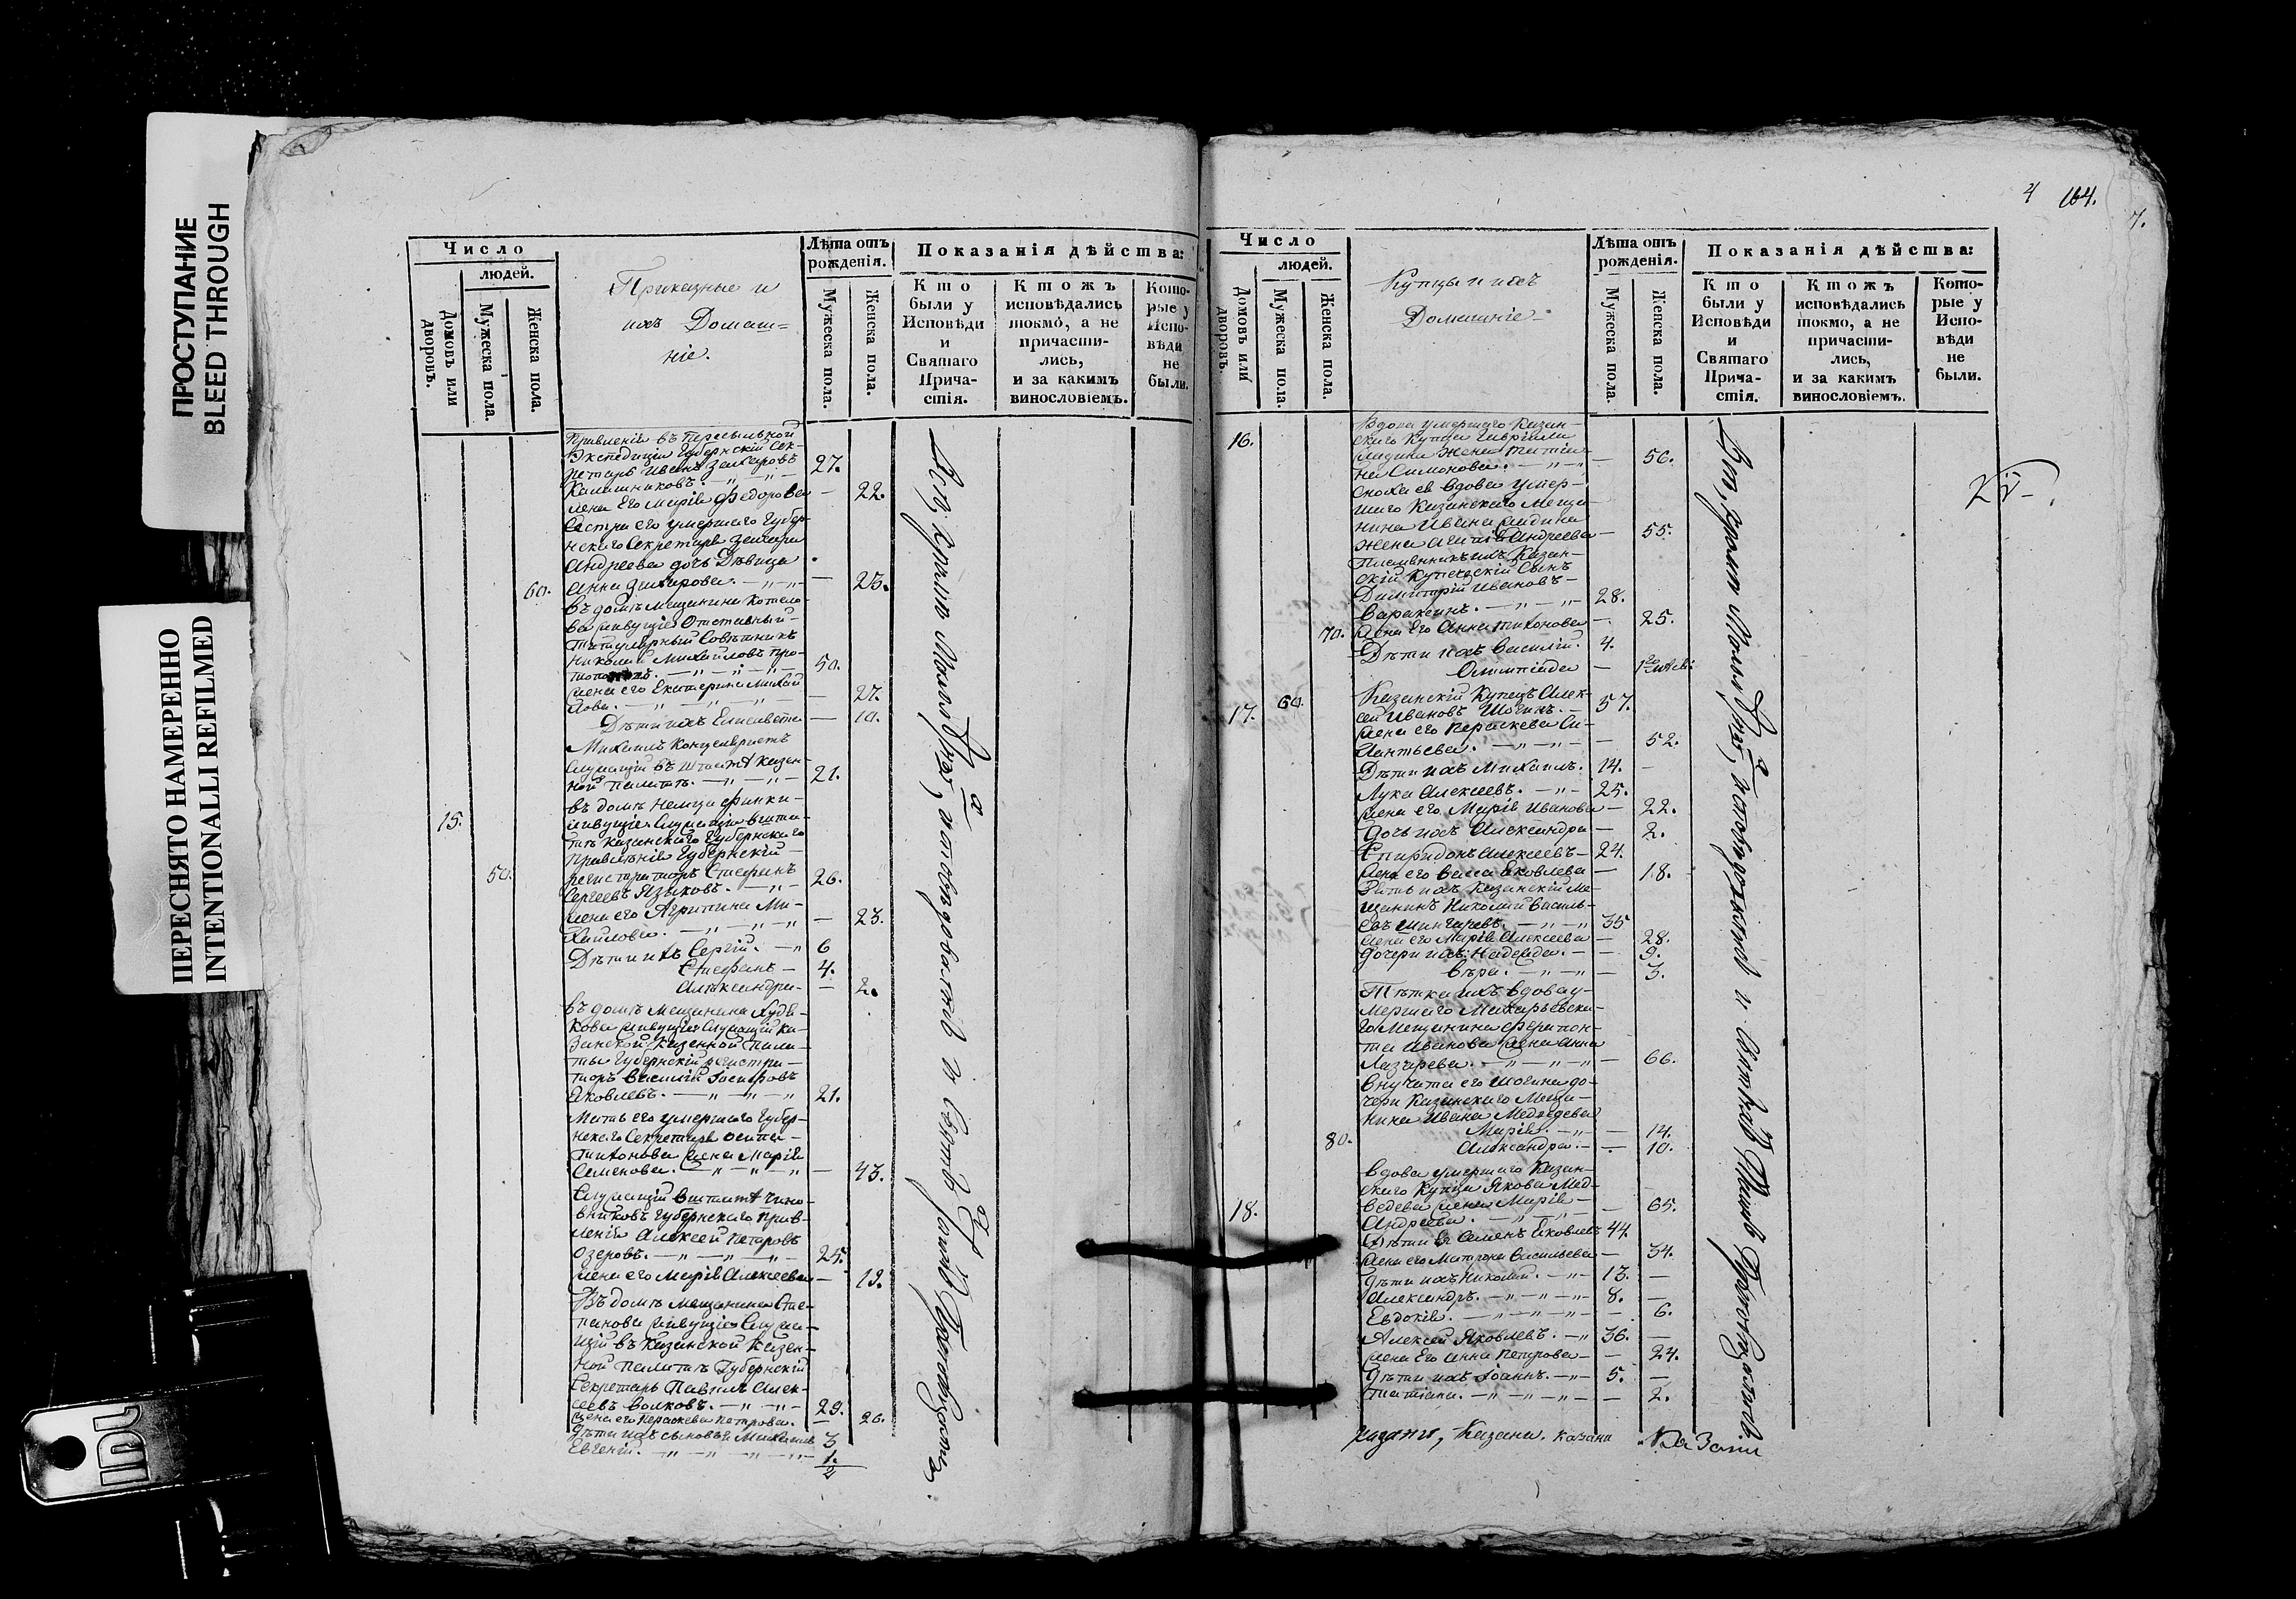 ПРОСТУПАНИЕ
BLEED THROUGH
ПЕРЕСНЯТО НАМЕРЕННО
INTENTIONALLI REFILMED
Число
людей.
Домовъ или дворовъ.
Мужеска пола.
Женска пола.
Приказные и
ихъ Домаш=
ніе.
Лѣта отъ
рожденія.
Мужеска пола.
Женска пола.
Показанія дѣйства:
Кто
были у
Исповѣди
и
Святаго
Прича-
стія.
Ктожъ
исповѣдались
токмо, а не
причасти-
лись,
и за какимъ
винословіемъ.
Кото-
рые у
Испо-
вѣди
не
были.
Правленія въ
Экспедиціи Губернскій Сек-
ретарь Иванъ Захаровъ 27.
Калашниковъ.
жена его Марія Федорова — 22.
Сестра его умершаго Губер-
нскаго Секретаря Захара
Андреева дочь Дѣвица
60. Анна Захарова. — 23.
въ домѣ Мещанина
живущіе Отставный
Титулярный Совѣтникъ
Николай Михайловъ 50.
жена его Екатерина Михай
лова. — 27.
Дѣти ихъ Елисавета — 10.
Михаилъ Канцеляристъ
Служащій въ Штатѣ Казен-
ной Палатѣ. 21.
15. въ домѣ
живущіе Служащій в шта-
тѣ Казанскаго Губернскаго
Правленія Губернскій
50. регистраторъ Стефанъ 26.
Сергеевъ Языковъ.
жена его Агрипина Ми-
хайлова. — 23.
Дѣти ихъ Сергій. 6
Стефанъ — 4.
Александра — 2.
въ домѣ Мещанина Худя-
кова живущіе Служащій Ка-
занской Казенной Пала-
ты Губернскій регистра-
торъ Василій Іосифовъ
Яковлевъ. 21.
Мать его умершаго Губер-
нскаго Секретаря
Тихонова жена Марія
Семенова. — 43.
Служащій в штатѣ Чино-
вниковъ Губернскаго Прав-
ленія Алексей Петровъ
Озеровъ. 25.
жена его Марія Алексеева — 19.
Въ домѣ Мещанина Сте-
панова живущіе Служа-
щій въ Казанской Казен-
ной Палатѣ Губернскій
Секретарь Павелъ Алек-
сеевъ Волковъ. 29.
жена его Параскева Петрова. — 26.
Дѣти ихъ сыновья Михаилъ 3
Евгеній. 1/2
4 164.
7.
Число
людей.
Домовъ или дворовъ.
Мужеска пола.
Женска пола.
Купцы и ихъ
Домашніе
Лѣта отъ
рожденія.
Мужеска пола.
Женска пола.
Показанія дѣйства:
Кто
были у
Исповѣди
и
Святаго
Прича-
стія.
Ктожъ
исповѣдались
токмо, а не
причасти-
лись,
и за какимъ
винословіемъ.
Кото-
рые у
Испо-
вѣди
не
были.
16. Вдова умершаго Казан-
скаго Купца Гавріила
жена Татіа-
на Симонова. — 56.
Сноха ея вдова умер-
шаго Казанскаго Меща-
нина Ивана
жена Андреева — 55.
Племянникъ ихъ Казан-
скій Купеческій Сынъ
Димитрій Ивановъ 28.
Вараксинъ.
70. жена его Анна Тихонова — 25.
Дѣти ихъ Василій. 4.
Олимпіада —
Казанскій Купецъ Алек-
17. 60. сей Ивановъ Шогинъ. — 57.
жена его Параскева Си-
лантьева. — 52.
Дѣти ихъ Михаилъ. 14. —
Лука Алексеевъ. 25.
жена его Марія Иванова — 22.
дочь ихъ Александра — 2.
Спиридонъ Алексеевъ — 24.
жена его Васса Яковлева — 18.
Зять ихъ Казанскій Ме-
щанинъ Николай Василь-
евъ 35
жена его Марія Алексеева — 28.
Дочери ихъ Надежда. — 9.
Вѣра. — 3.
Тѣтка ихъ вдова у-
мершаго Макарьевска-
го Мещанина Ферапон-
та Иванова жена Анна
Лазарева. — 66.
внучата его Шогина до-
чери Казанскаго Меща-
нина Ивана Медведева
Марія. — 14.
80. Александра. — 10.
вдова умершаго Казан-
скаго Купца Якова Мед-
18. ведева жена Марія — 65.
Андреева.
Дѣти ея Семенъ Яковлевъ 44.
жена его Матрона Васильева — 34.
Дѣти ихъ Николай. 13. —
Александръ. 8. —
Евдокія. — 6.
Алексей Яковлевъ. 36. —
жена его Анна Петрова — 24.
Дѣти ихъ Іоаннъ. 5. —
Татіана. — 2.
Казани, Казани. Казани Казани